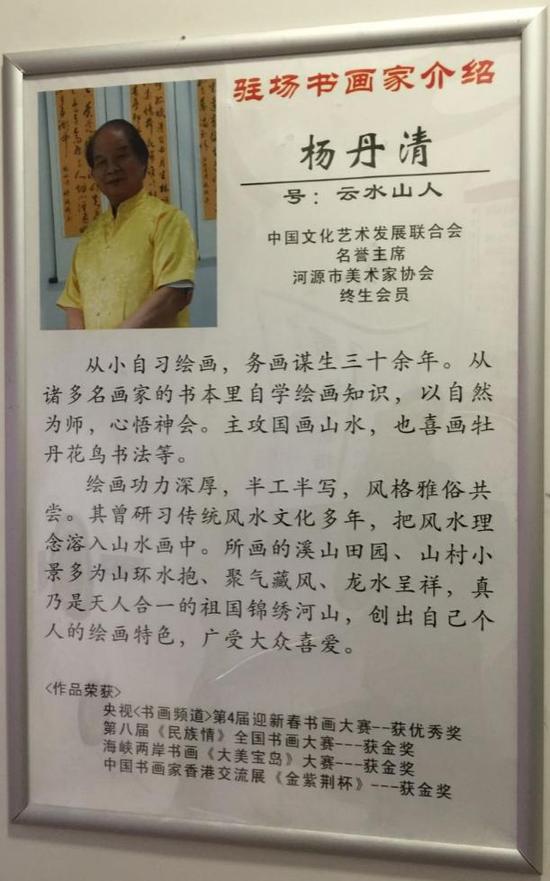 驻场书画家介绍
杨丹清
号：云水山人
中国文化艺术发展联合会
名誉主席
河源市美术家协会
终生会员
从小自习绘画，务画谋生三十余年。从
诸多名画家的书本里自学绘画知识，以自然
为师，心悟神会。主攻国画山水，也喜画牡
丹花鸟书法等。
绘画功力深厚，半工半写，风格雅俗共
尝。其曾研习传统风水文化多年，把风水理
念溶入山水画中。所画的溪山田园、山村小
景多为山环水抱、聚气藏风、龙水呈祥，真
乃是天人合一的祖国锦绣河山，创出自己个
人的绘画特色，广受大众喜爱。
<作品荣获>
央视<书画频道>第4届迎新春书画大赛--获优秀奖
第八届《民族情》全国书画大赛---获金奖
海峡两岸书画《大美宝岛》大赛---获金奖
中国书画家香港交流展《金紫荆杯》---获金奖